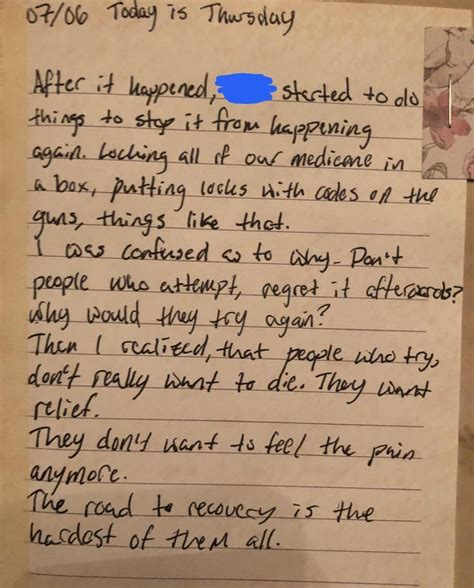 07/06 Today is Thursday
After it happened, started to do
things to stop it from happening
again. Locking all of our medicene in
a box, putting locks with codes on the
guns, things like that.
I was confused as to why. Don't
people who attempt, regret it afterwards?
Why would they try again?
Then I realized, that people who try,
don't really want to die. They want
relief.
They don't want to feel the pain
anymore.
The road to recovery is the
hardest of them all.